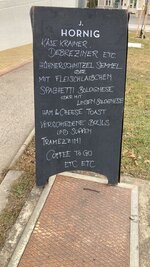 J.
HORNIG
KÄSE KRAINER
DEBREZINER ETC
HÜHNERSCHNITZEL SEMMEL
ODER
MIT FLEISCHLAIBCHEN
SPAGHETTI BOLOGNESE
ODER MIT
LINSEN BOLOGNESE
HAM & CHEESE TOAST
VERSCHIEDENE BOWLS
UND SUPPEN
TRAMEZZINI
COFFEE TO GO
ETC ETC